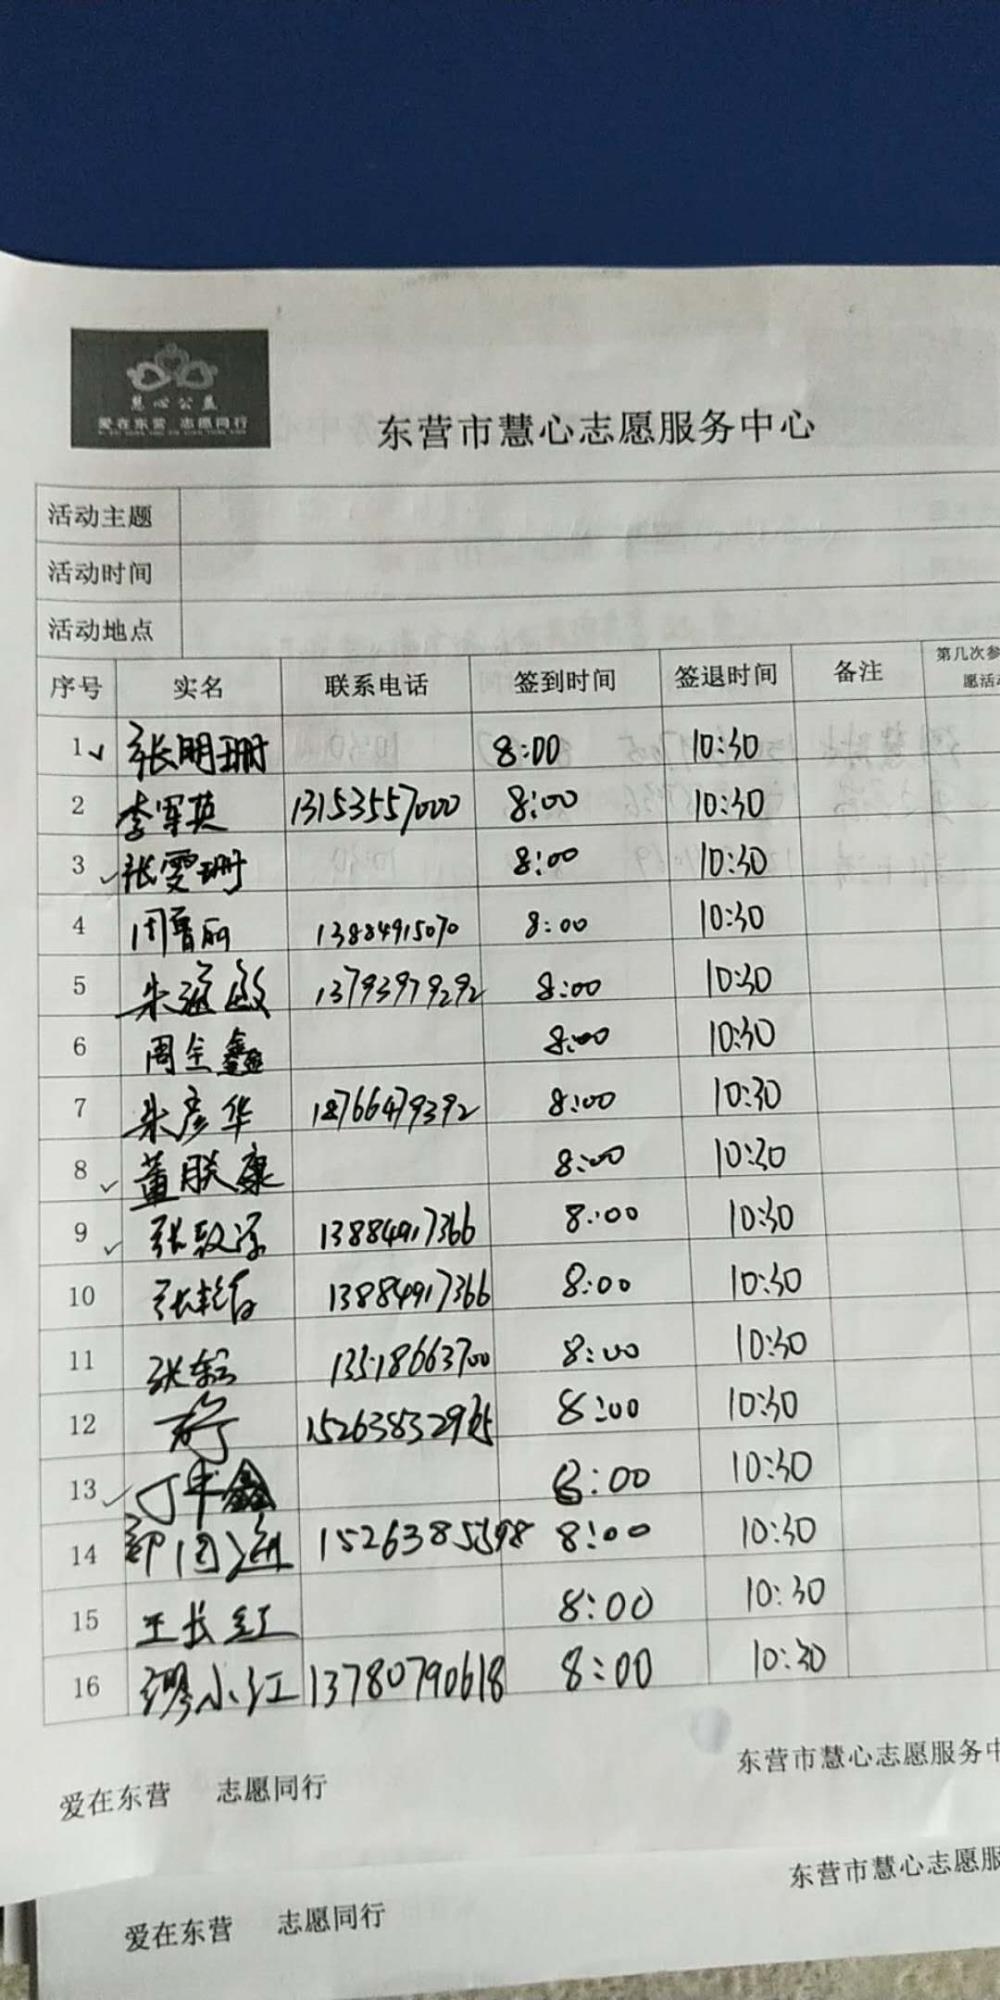 慧心公益
爱在东营 志愿同行
东营市慧心志愿服务中心
活动主题
活动时间
活动地点
序号 实名 联系电话 签到时间 签退时间 备注 第几次参
愿活动
1 ✓ 张明珊 8:00 10:30
2 李军英 13153557000 8:00 10:30
3 ✓ 张雯珊 8:00 10:30
4 周鲁丽 13884915070 8:00 10:30
5 朱海敏 13793979292 8:00 10:30
6 周全鑫 8:00 10:30
7 朱彦华 18766479392 8:00 10:30
8 ✓ 董朕康 8:00 10:30
9 ✓ 张 13884917366 8:00 10:30
10 张 13884917366 8:00 10:30
11 张 13518663700 8:00 10:30
12 8:00 10:30
13 ✓ 丁丰鑫 8:00 10:30
14 8:00 10:30
15 王长红 8:00 10:30
16 缪小江 13780790618 8:00 10:30
爱在东营 志愿同行
东营市慧心志愿服务中
东营市慧心志愿服
爱在东营 志愿同行